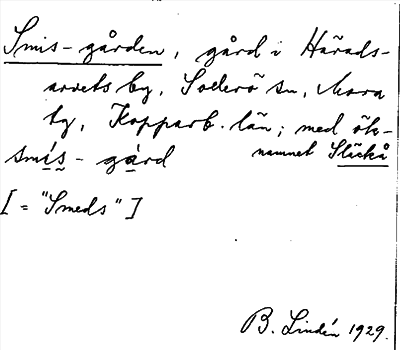 Smis-gården, gård i Härads-
arvets by, Sollerö sn, Mora
tg, Kopparb. län; med ök-
namnet Släckå
smis-gård
[= "Smeds"]
B. Lindén 1929.